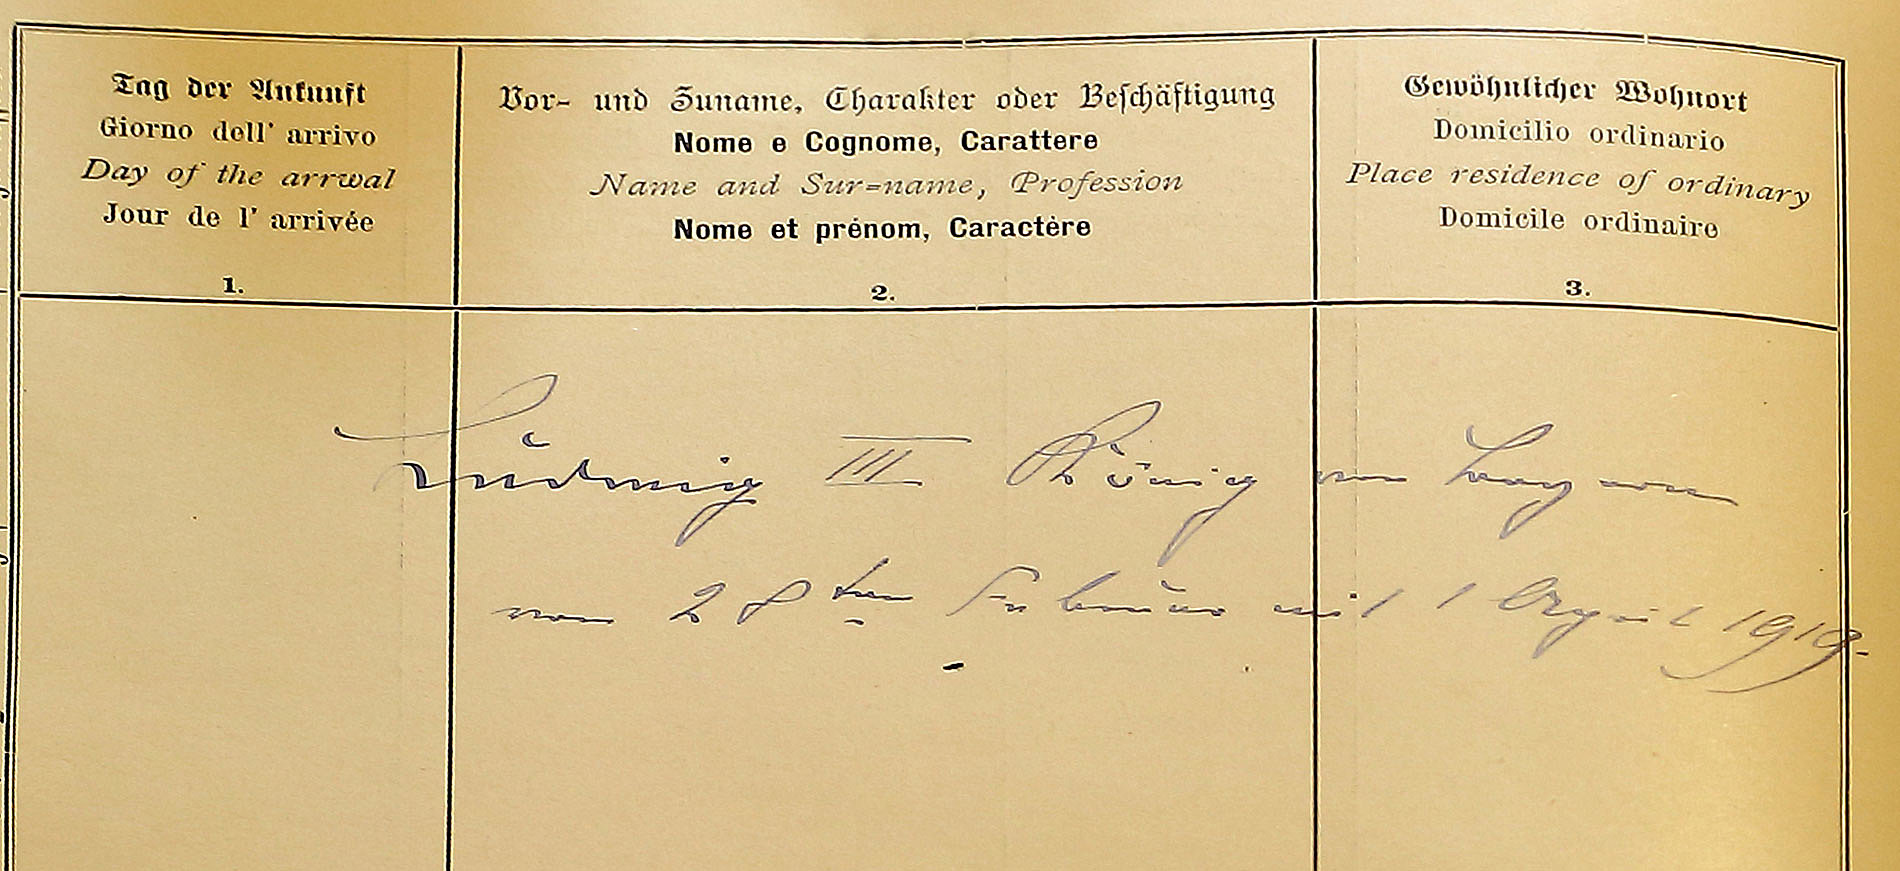 Tag der Ankunft
Giorno dell' arrivo
Day of the arrwal
Jour de l' arrivée
1.
Vor- und Zuname, Charakter oder Beschäftigung
Nome e Cognome, Carattere
Name and Sur=name, Profession
Nome et prénom, Caractère
2.
Gewöhnlicher Wohnort
Domicilio ordinario
Place residence of ordinary
Domicile ordinaire
3.
Ludwig III König von Bayern
von 28ten Februar mit 1 April 1919.